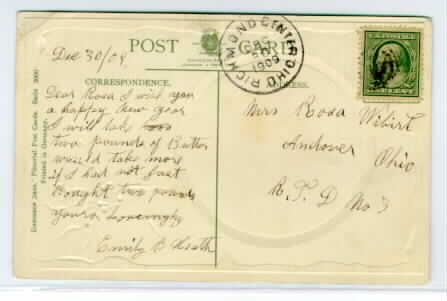 Dec 30/09.
POST CARD
CORRESPONDENCE.
Dear Rosa I wish you
a happy New Year
I will take
two pounds of Butter
would take more
if I had not just
bought two pounds
yours, Lovingly
Emily B Heath
Mrs Rosa Wibert
Andover
Ohio
R. F. D No 3
RICHMOND CENTER OHIO
DEC
30
1909
Printed in Germany.